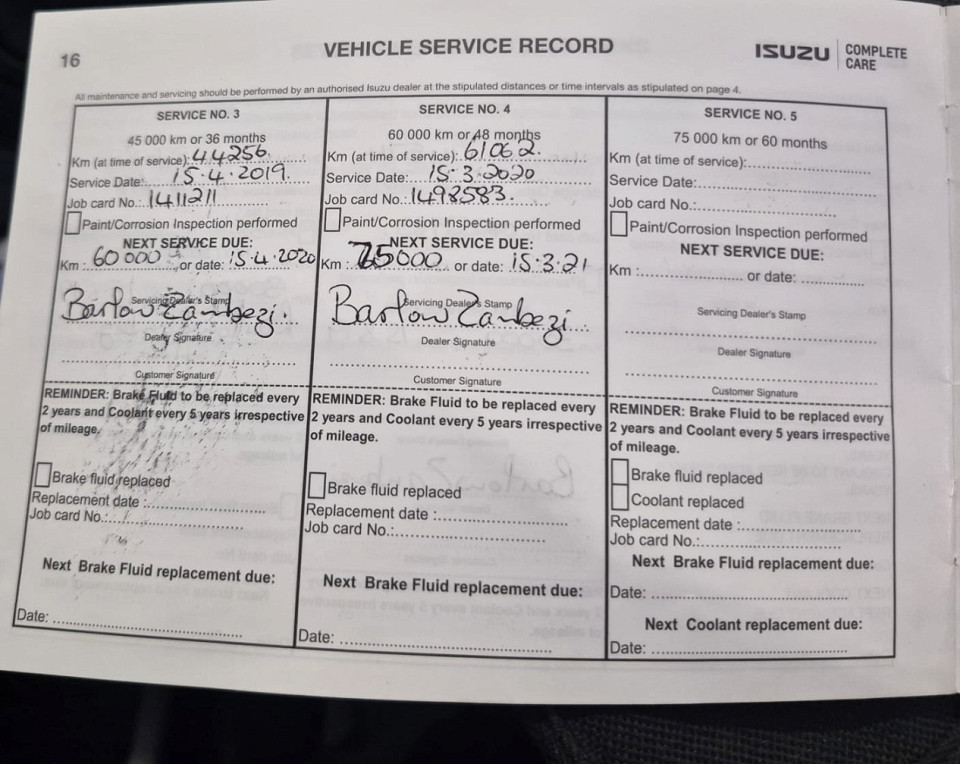 16
VEHICLE SERVICE RECORD
ISUZU COMPLETE CARE
All maintenance and servicing should be performed by an authorised Isuzu dealer at the stipulated distances or time intervals as stipulated on page 4.
SERVICE NO. 3
45 000 km or 36 months
Km (at time of service): 44256.
Service Date: 15.4.2019.
Job card No.: 1411211
Paint/Corrosion Inspection performed
NEXT SERVICE DUE:
Km : 60000 or date: 15.4.2020
Servicing Dealer's Stamp
Barlow Zambezi.
Dealer Signature
Customer Signature
REMINDER: Brake Fluid to be replaced every
2 years and Coolant every 5 years irrespective
of mileage.
Brake fluid replaced
Replacement date :
Job card No.:
Next Brake Fluid replacement due:
Date:
SERVICE NO. 4
60 000 km or 48 months
Km (at time of service): 61062.
Service Date: 15.3.2020
Job card No.: 1498583.
Paint/Corrosion Inspection performed
NEXT SERVICE DUE:
Km : 75000 or date: 15.3.21
Servicing Dealer's Stamp
Barlow Zambezi
Dealer Signature
Customer Signature
REMINDER: Brake Fluid to be replaced every
2 years and Coolant every 5 years irrespective
of mileage.
Brake fluid replaced
Replacement date :
Job card No.:
Next Brake Fluid replacement due:
Date:
SERVICE NO. 5
75 000 km or 60 months
Km (at time of service):
Service Date:
Job card No.:
Paint/Corrosion Inspection performed
NEXT SERVICE DUE:
Km : or date:
Servicing Dealer's Stamp
Dealer Signature
Customer Signature
REMINDER: Brake Fluid to be replaced every
2 years and Coolant every 5 years irrespective
of mileage.
Brake fluid replaced
Coolant replaced
Replacement date :
Job card No.:
Next Brake Fluid replacement due:
Date:
Next Coolant replacement due:
Date: